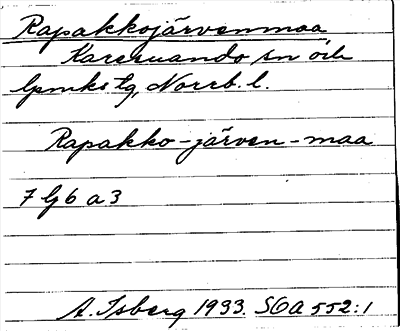 Rapakkojärvenmaa
Karesuando sn och
lpmks tg, Norrb. l.
Rapakko-järven-maa
7 G 6 a 3
A. Isberg 1933. SOA 552:1